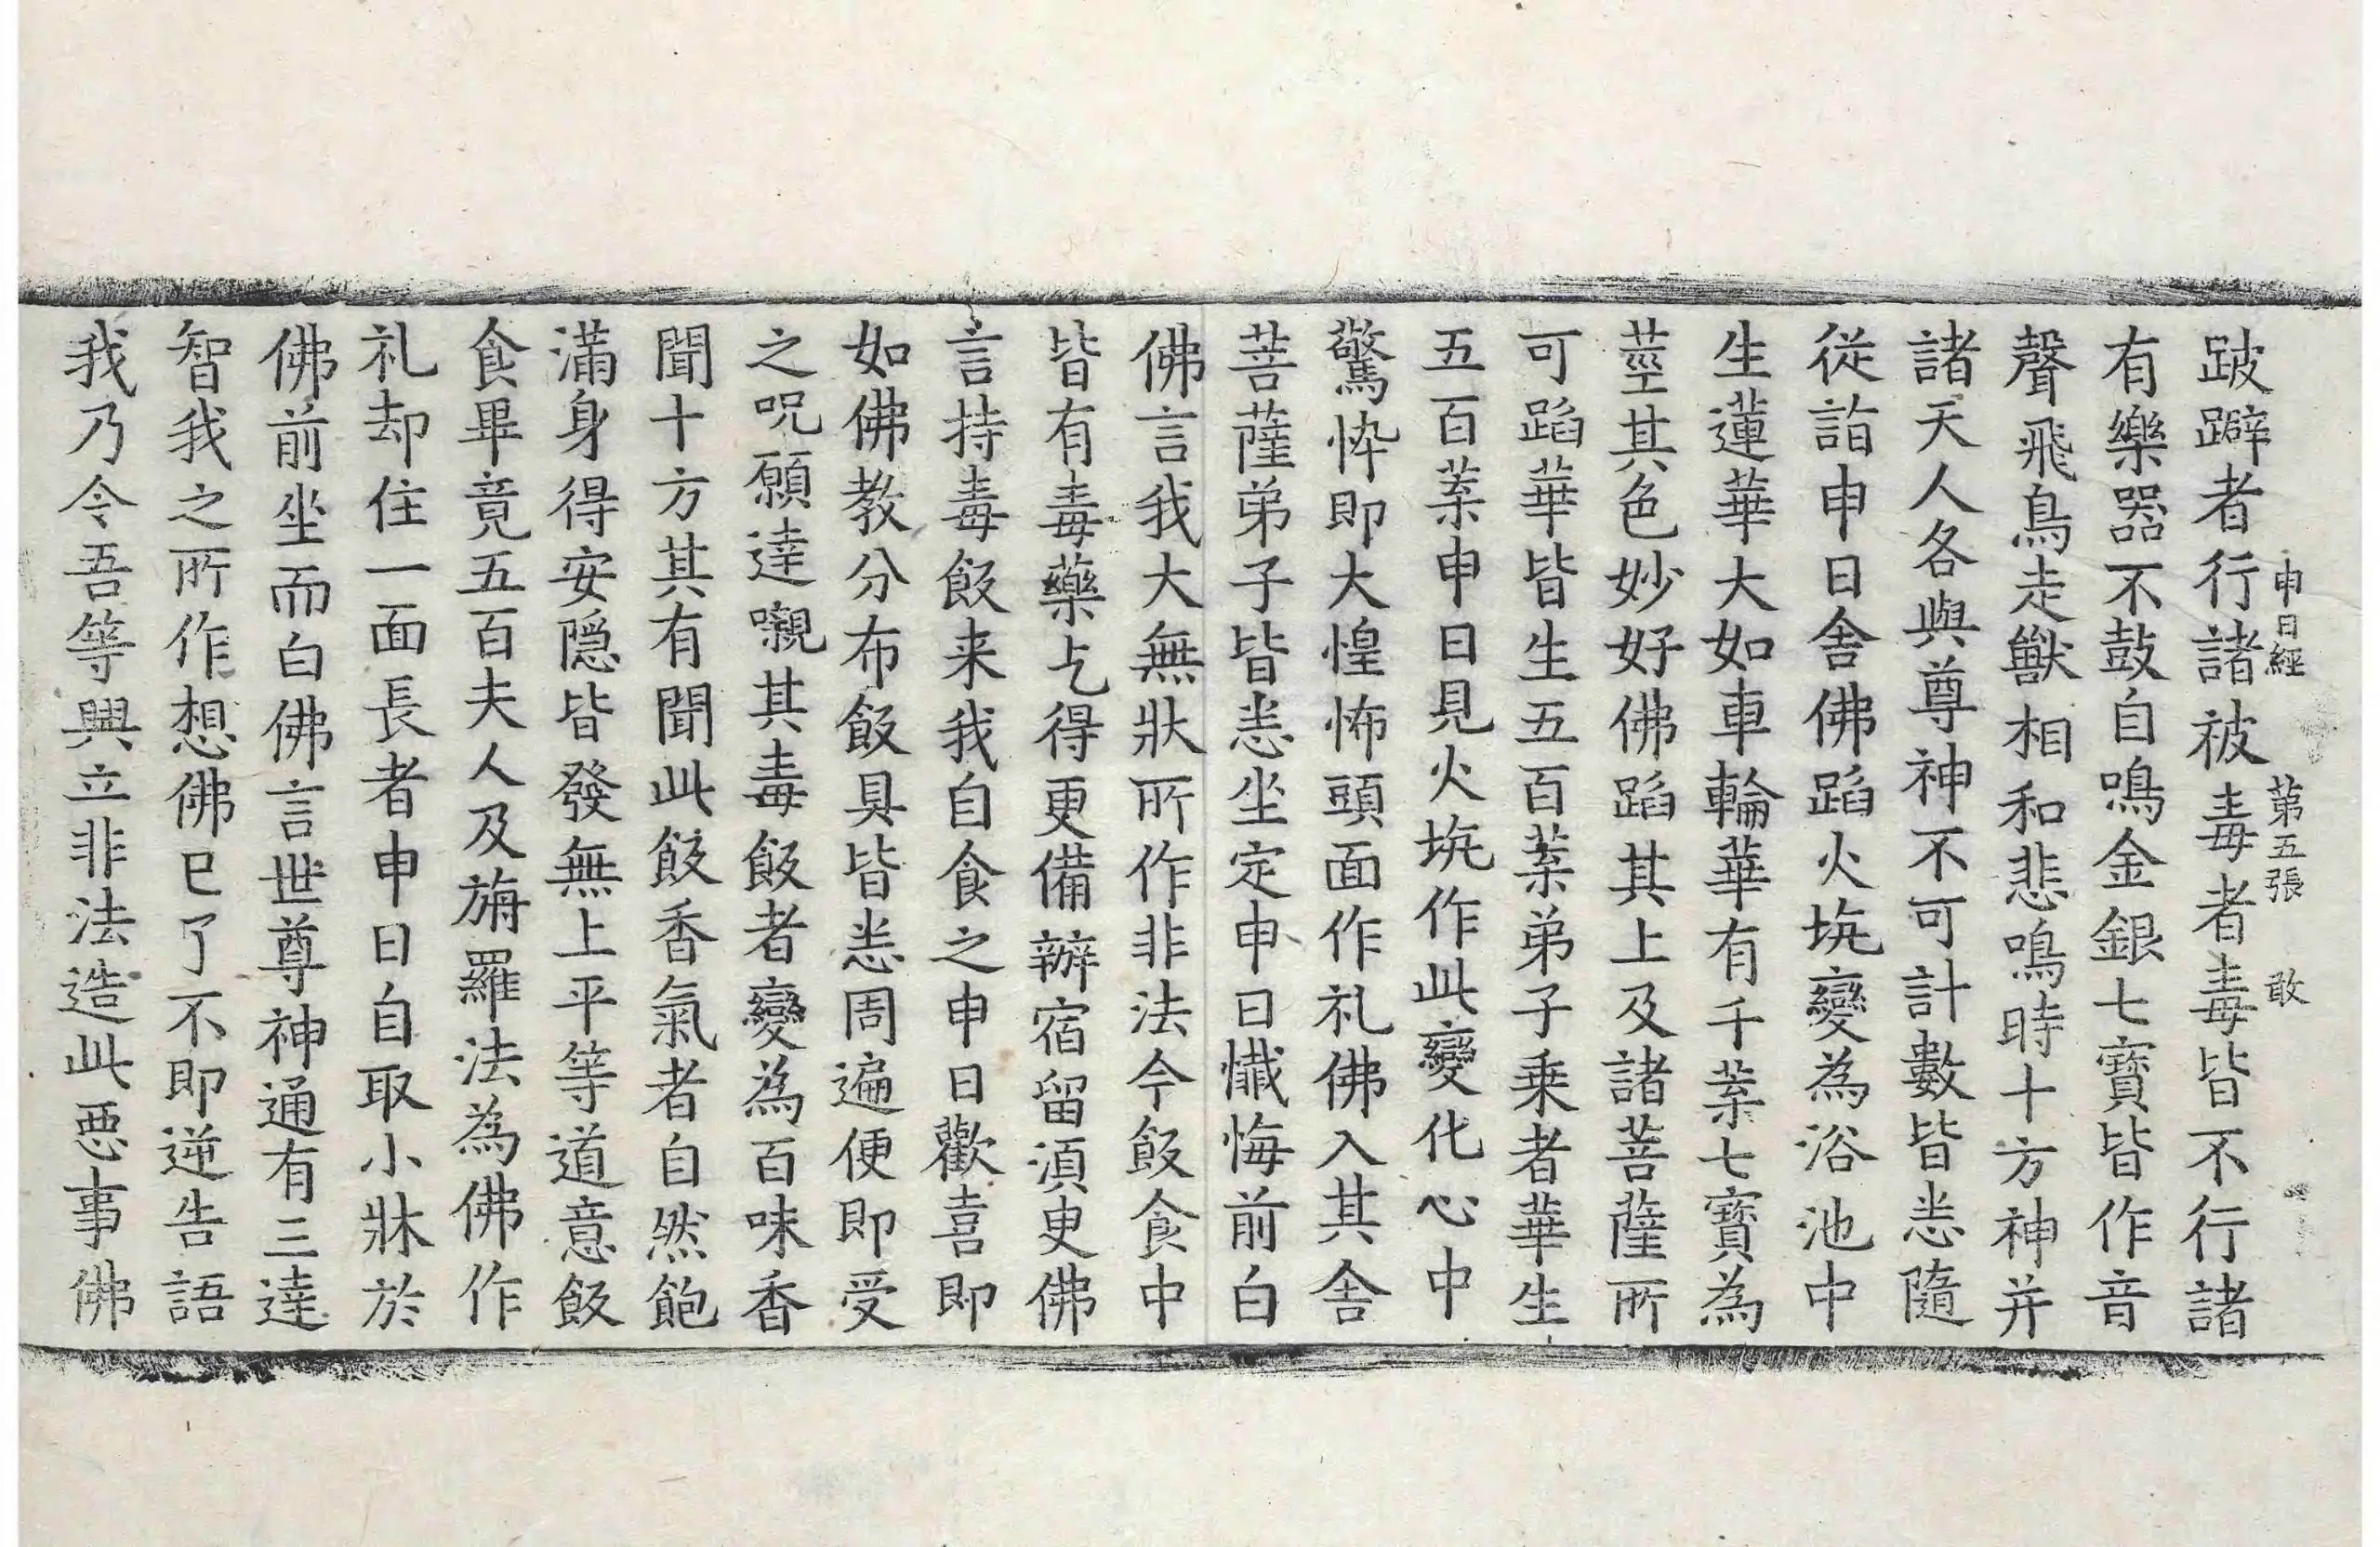 申日經 第五張 敢
跛躃者行諸被毒者毒皆不行諸
有樂器不鼓自鳴金銀七寶皆作音
聲飛鳥走獸相和悲鳴時十方神并
諸天人各與尊神不可計數皆悉隨
從詣申日舍佛蹈火坈變為浴池中
生蓮華大如車輪華有千葉七寶為
莖其色妙好佛蹈其上及諸菩薩所
可蹈華皆生五百葉弟子乗者華生
五百葉申日見火坈作此變化心中
驚怖即大惶怖頭面作礼佛入其舍
菩薩弟子皆悉坐定申日懺悔前白
佛言我大無狀所作非法今飯食中
皆有毒藥乞得更備辦宿留湏臾佛
言持毒飯来我自食之申日歡喜即
如佛教分布飯具皆悉周遍便即受
之呪願達嚫其毒飯者變為百味香
聞十方其有聞此飯香氣者自然飽
滿身得安隠皆發無上平等道意飯
食畢竟五百夫人及旃羅法為佛作
礼却住一面長者申日自取小牀於
佛前坐而白佛言世尊神通有三達
智我之所作想佛已了不即逆告語
我乃令吾等興立非法造此惡事佛